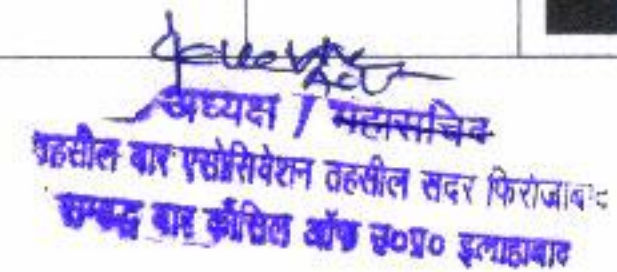 अध्यक्ष / महासचिव
तहसील बार एसोसिवेशन तहसील सदर फिरोजाबाद
सम्बद्ध बार कौंसिल ऑफ उ०प्र० इलाहाबाद